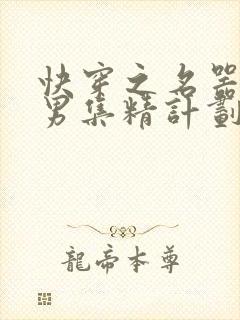 快穿之名器
男集精計劃
龍帝本尊